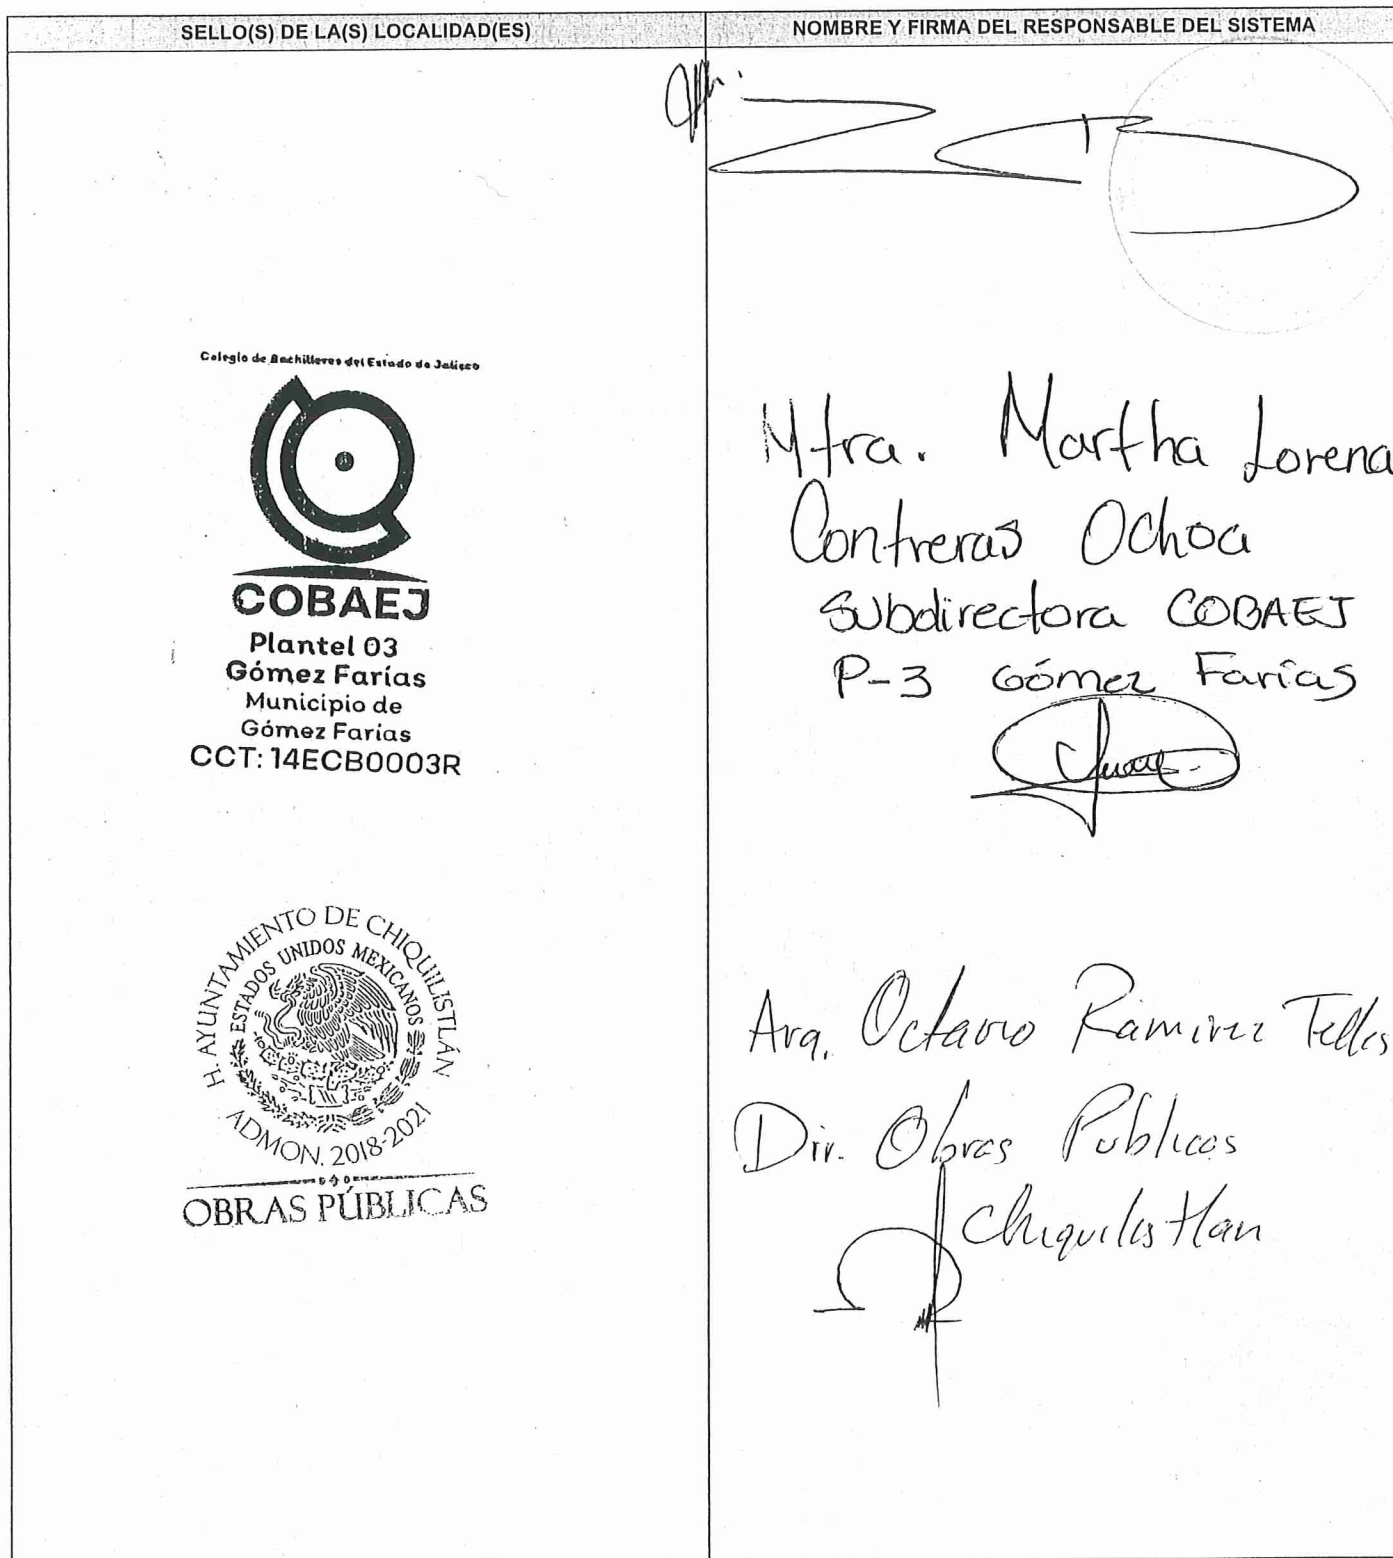 SELLO(S) DE LA(S) LOCALIDAD(ES)
NOMBRE Y FIRMA DEL RESPONSABLE DEL SISTEMA
Colegio de Bachilleres del Estado de Jalisco
COBAEJ
Plantel 03
Gómez Farías
Municipio de
Gómez Farías
CCT: 14ECB0003R
Mtra. Martha Lorena
Contreras Ochoa
Subdirectora COBAEJ
P-3 Gómez Farías
H. AYUNTAMIENTO DE CHIQUILISTLÁN
ESTADOS UNIDOS MEXICANOS
ADMON. 2018-2021
OBRAS PÚBLICAS
Arq. Octavio Ramirez Telles
Dir. Obras Publicas
Chiquilistlan